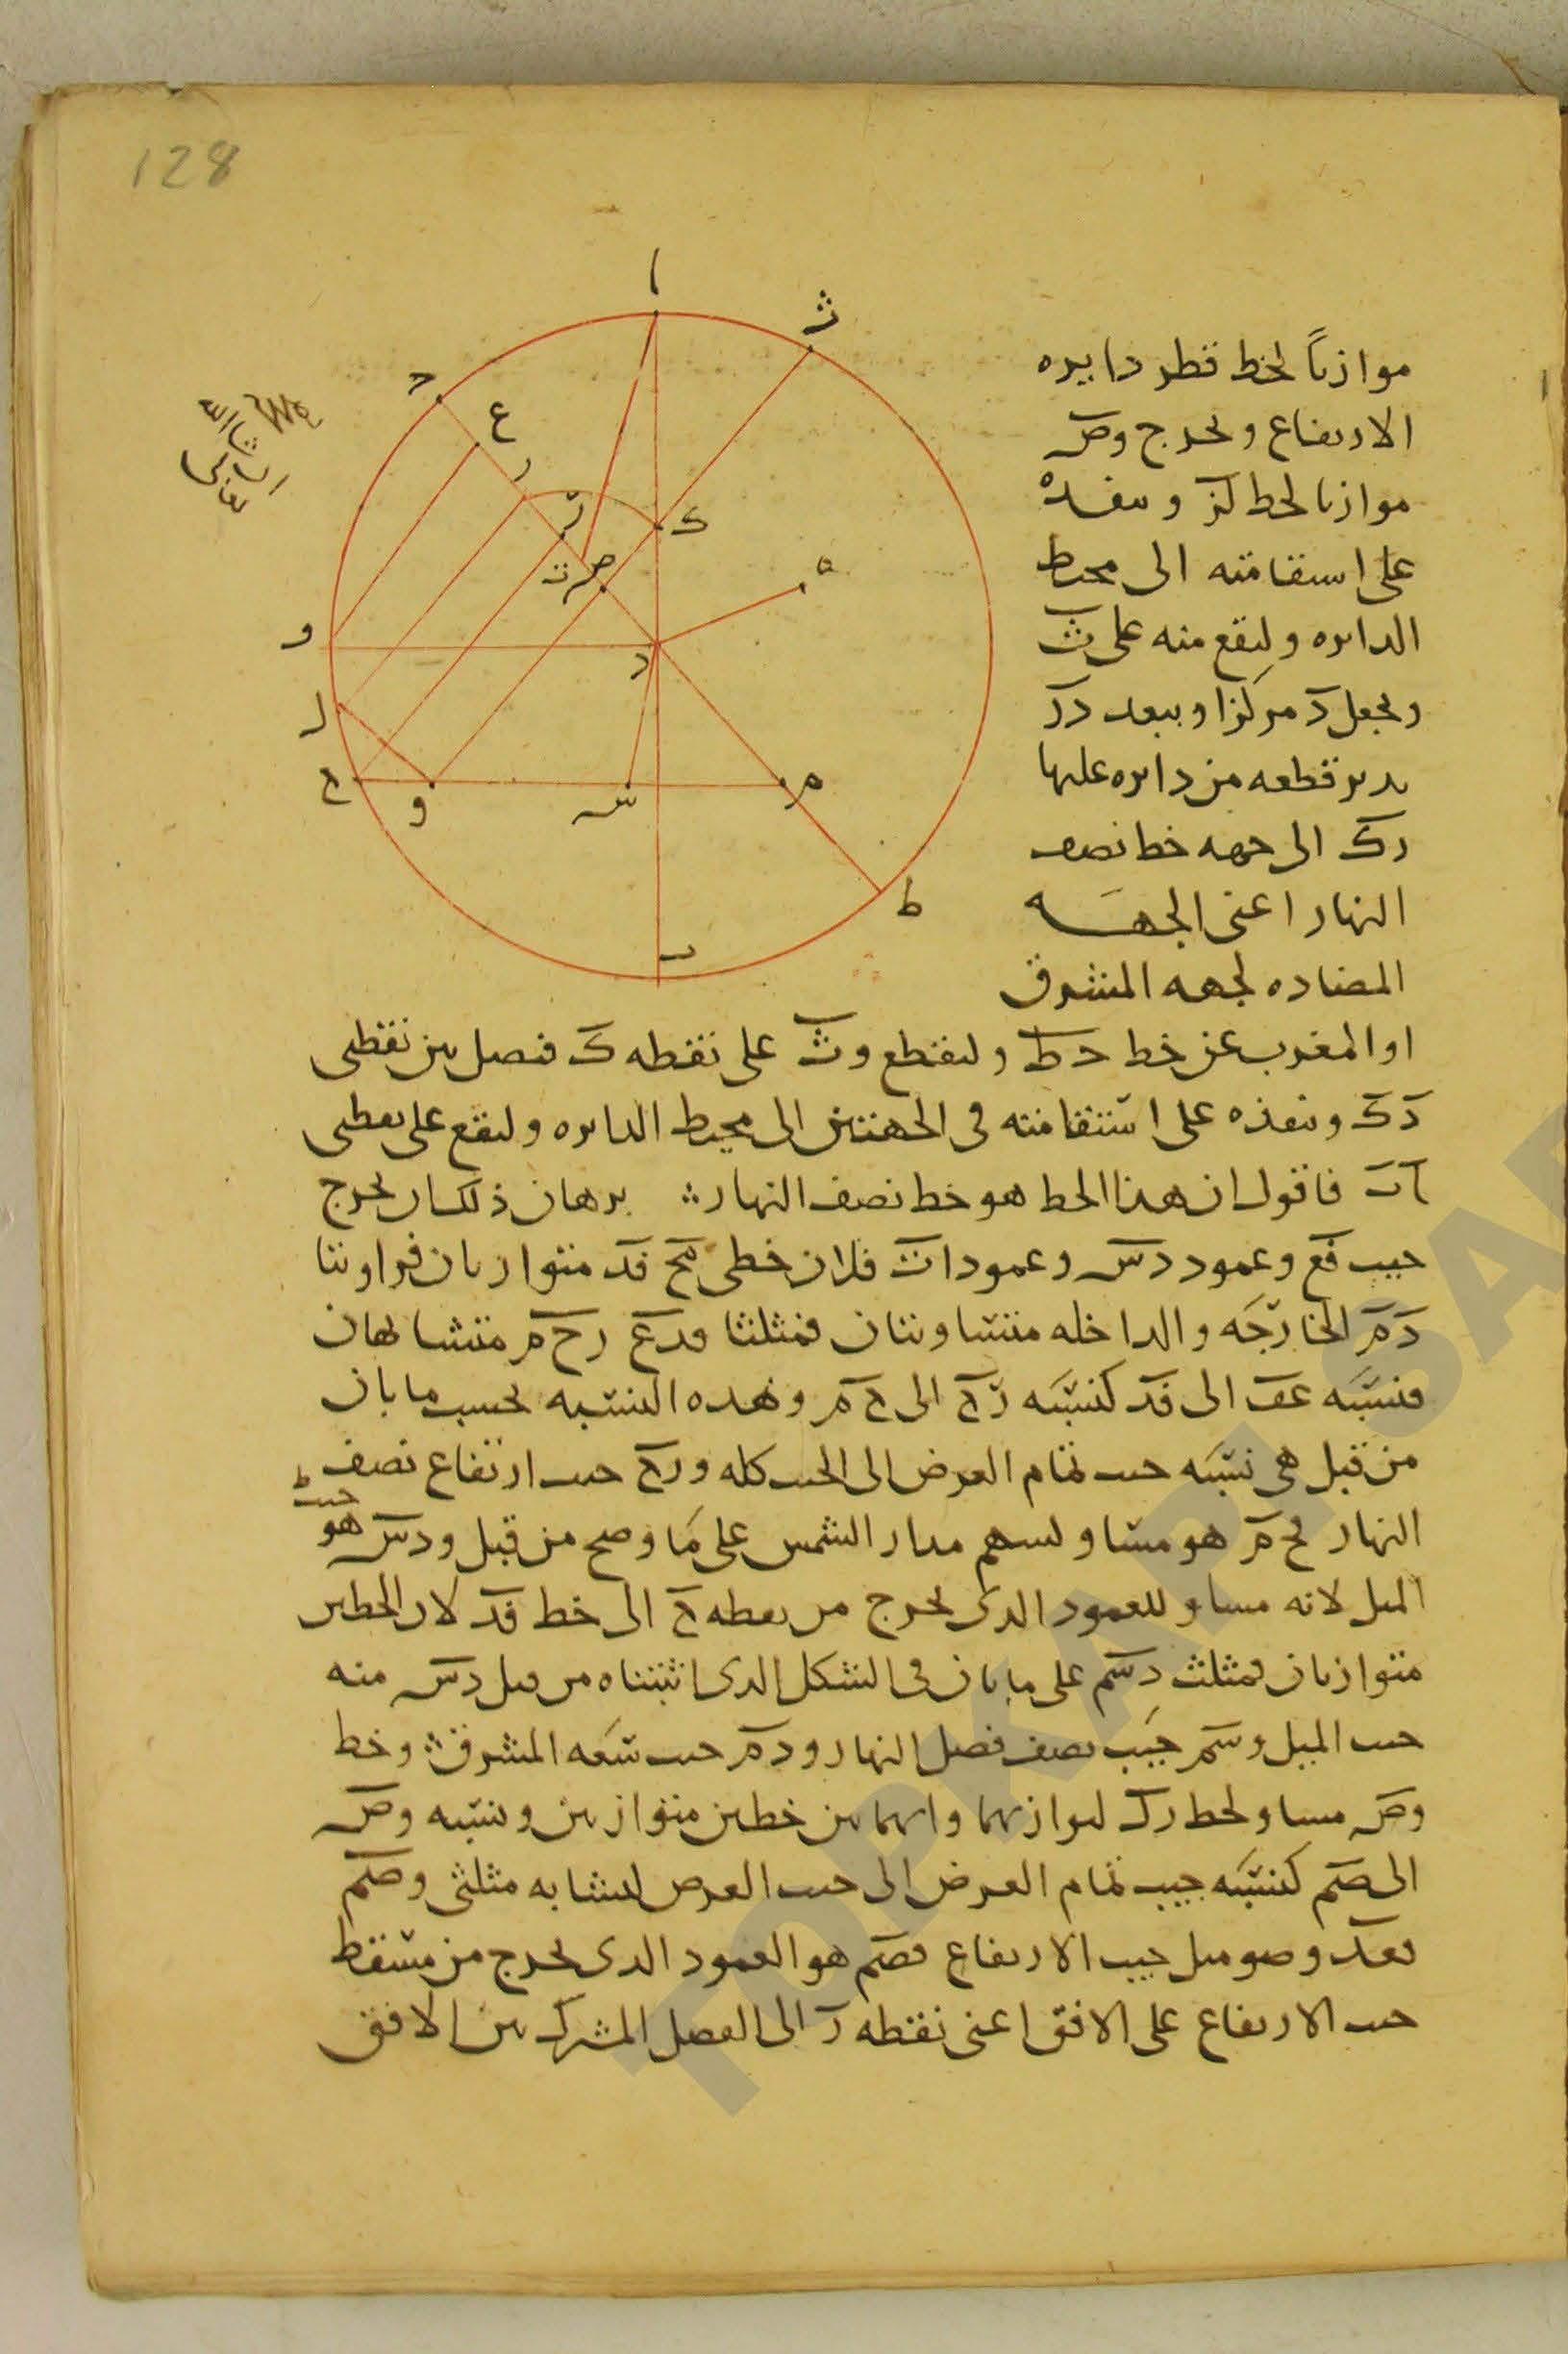 128
موازيا لخط قطر دايره
الارتفاع ونخرج وص
موازيا لخط لز وننفذه
على استقامته الى محيط
الدايره وليقع منه على ث
ونجعل د مركزا وببعد در
ندير قطعه من دايره عليها
رك الى جهه خط نصف
النهار اعنى الجهه
المضاده لجهه المشرق
او المغرب عن خط حط وليقطع وث على نقطه ك فنصل بين نقطتى
دك وننفذه على استقامته فى الجهتين الى محيط الدايره وليقع على نقطتى
اب فاقول ان هذا الخط هو خط نصف النهار برهان ذلك ان نخرج
جيب فع وعمود دس وعمود ات فلان خطى مح فد متوازيان فزاويتا
دم الخارجه والداخله متساويتان فمثلثا فدع رحم متشابهان
فنسبه عف الى فد كنسبه زح الى ح م وهذه النسبه بحسب ما بان
من قبل هى نسبه جيب تمام العرض الى الجيب كله ورح جيب ارتفاع نصف
النهار فح م هو مساو لسهم مدار الشمس على ما وضح من قبل ودس هو جيب
الميل لانه مساو للعمود الذى يخرج من نقطه ح الى خط فد لان الخطين
متوازيان فمثلث دسم على ما بان فى الشكل الذى اثبتناه من قبل دس منه
جيب الميل وسم جيب نصف فضل النهار ودم جيب سعه المشرق وخط
وص مساو لخط رك لتوازيهما وانهما بين خطين متوازيين ونسبه وص
الى صم كنسبه جيب تمام العرض الى جيب العرض لتشابه مثلثى وصم
فعد وصو مثل جيب الارتفاع فصم هو العمود الذى يخرج من مسقط
جيب الارتفاع على الافق اعنى نقطه ر الى الفصل المشترك بين الافق
ا
ث
ح
ع
ر
ز
ك
ص
ت
ه
و
د
ل
ح
و
س
م
ط
ب
TOPKAPI SA